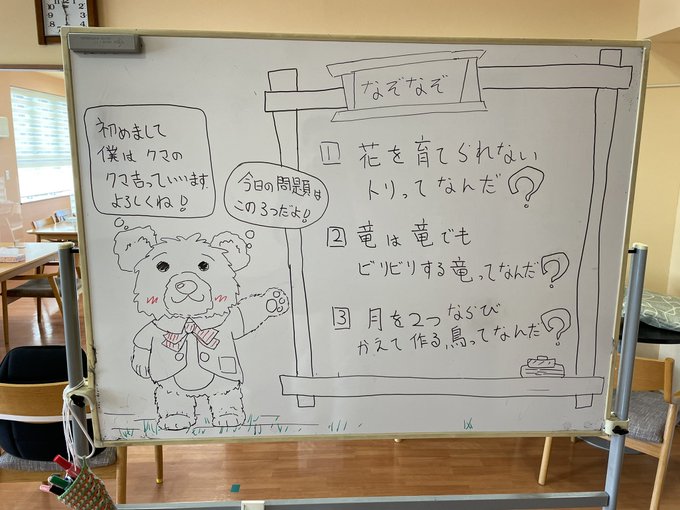 なぞなぞ
初めまして
僕は クマの
クマ吉っていいます
よろしくね!
今日の問題は
この3つだよ!
1 花を育てられない
トリってなんだ?
2 竜は竜でも
ビリビリする竜ってなんだ?
3 月を2つ ならび
かえて作る鳥ってなんだ?